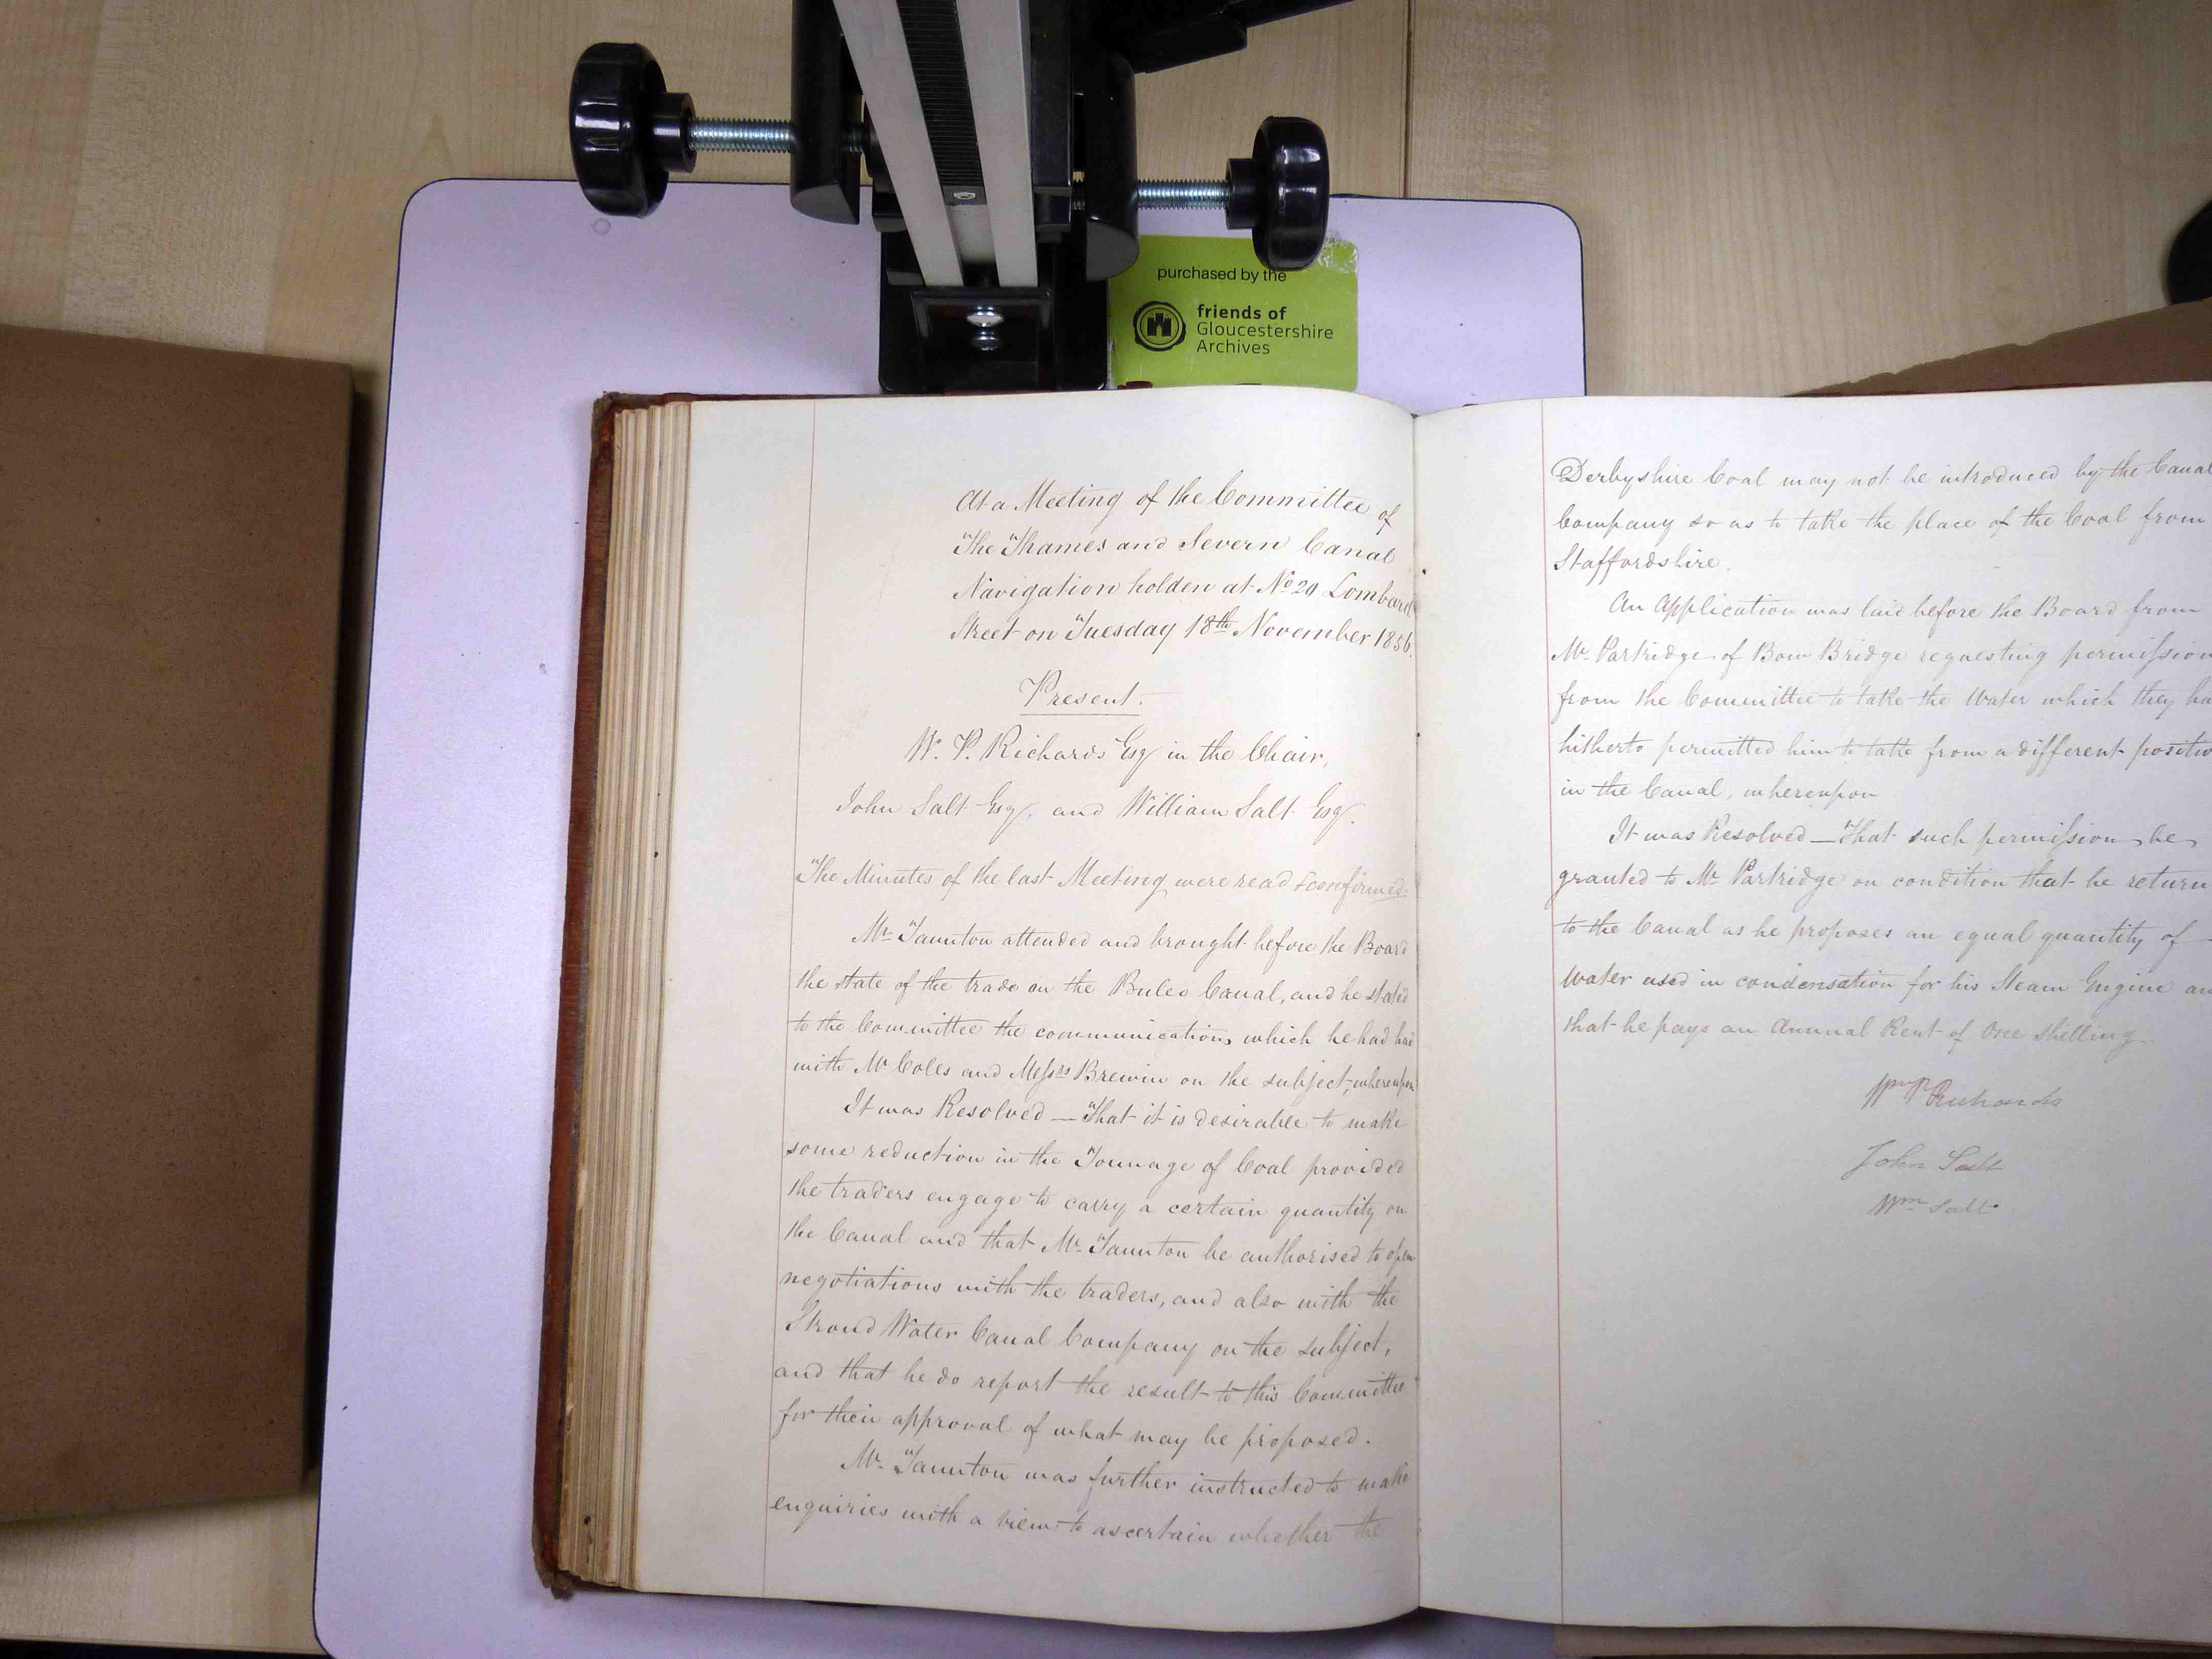 purchased by the
friends of
Gloucestershire
Archives
At a Meeting of the Committee of
The Thames and Severn Canal
Navigation holden at No 20 Lombard
Street on Tuesday 18th November 1856.
Present.
W. P. Richards Esq in the Chair,
John Salt Esq, and William Salt Esq.
The Minutes of the last Meeting were read & confirmed.
Mr Taunton attended and brought before the Board
the state of the trade on the Canal, and he stated
to the Committee the communications which he had had
with Mr Coles and Messrs Brewin on the subject, whereupon
It was Resolved — That it is desirable to make
some reduction in the Tonnage of Coal provided
the traders engage to carry a certain quantity on
the Canal and that Mr Taunton be authorised to open
negotiations with the traders, and also with the
Stroud Water Canal Company on the subject,
and that he do report the result to this Committee
for their approval of what may be proposed.
Mr Taunton was further instructed to make
enquiries with a view to ascertain whether the
Derbyshire Coal may not be introduced by the Canal
Company so as to take the place of the Coal from
Staffordshire.
An Application was laid before the Board from
Mr Partridge of Bow Bridge requesting permission
from the Committee to take the Water which they ha
hitherto permitted him to take from a different positio
in the Canal, whereupon
It was Resolved — That such permission be
granted to Mr Partridge on condition that he return
to the Canal as he proposes an equal quantity of
Water used in condensation for his Steam Engine an
that he pays an Annual Rent of One Shilling
Wm P Richards
John Salt
Wm Salt